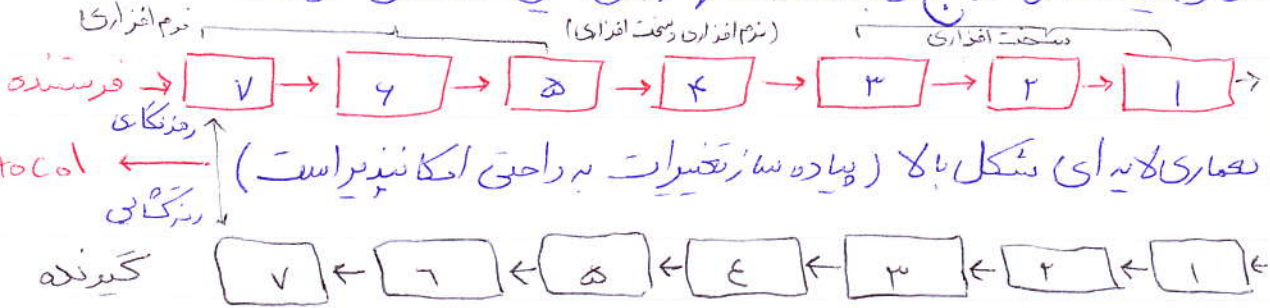 نرم افزاری (نرم افزاری و سخت افزاری) سخت افزاری
فرستنده ۷ ۶ ۵ ۴ ۳ ۲ ۱
رمزنگاری
معماری لایه ای شکل بالا (پیاده ساز تغییرات به راحتی امکانپذیر است) tocol
رمزگشایی
گیرنده ۷ ۶ ۵ ۴ ۳ ۲ ۱